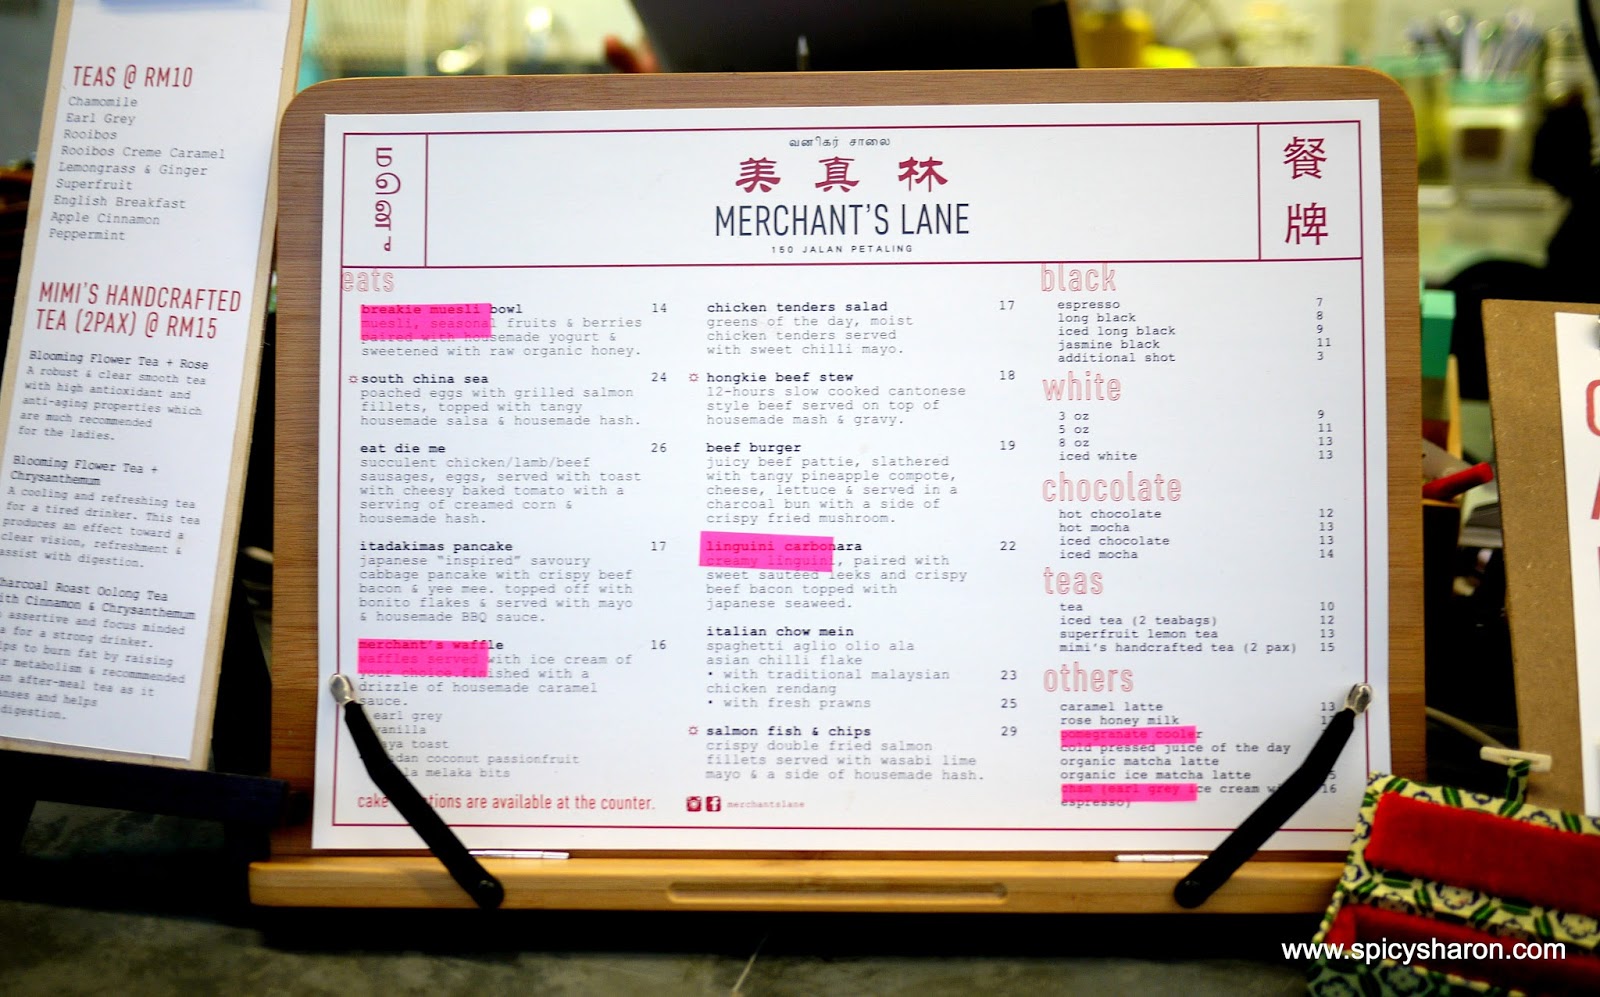 TEAS @ RM10
Chamomile
Earl Grey
Rooibos
Rooibos Creme Caramel
Lemongrass & Ginger
Superfruit
English Breakfast
Apple Cinnamon
Peppermint
MIMI'S HANDCRAFTED
TEA (2PAX) @ RM15
Blooming Flower Tea + Rose
A robust & clear smooth tea
with high antioxidant and
anti-aging properties which
are much recommended
for the ladies.
Blooming Flower Tea +
Chrysanthemum
A cooling and refreshing tea
for a tired drinker. This tea
produces an effect toward a
clear vision, refreshment &
assist with digestion.
Charcoal Roast Oolong Tea
with Cinnamon & Chrysanthemum
assertive and focus minded
for a strong drinker.
to burn fat by raising
metabolism & recommended
an after-meal tea as it
and helps
digestion.
வணிகர் சாலை
美真林
MERCHANT'S LANE
150 JALAN PETALING
餐牌
eats
breakie muesli bowl 14
muesli, seasonal fruits & berries
paired with housemade yogurt &
sweetened with raw organic honey.
south china sea 24
poached eggs with grilled salmon
fillets, topped with tangy
housemade salsa & housemade hash.
eat die me 26
succulent chicken/lamb/beef
sausages, eggs, served with toast
with cheesy baked tomato with a
serving of creamed corn &
housemade hash.
itadakimas pancake 17
japanese "inspired" savoury
cabbage pancake with crispy beef
bacon & yee mee. topped off with
bonito flakes & served with mayo
& housemade BBQ sauce.
merchant's waffle 16
waffles served with ice cream of
your choice finished with a
drizzle of housemade caramel
sauce.
earl grey
vanilla
toast
coconut passionfruit
melaka bits
cake are available at the counter.
chicken tenders salad 17
greens of the day, moist
chicken tenders served
with sweet chilli mayo.
hongkie beef stew 18
12-hours slow cooked cantonese
style beef served on top of
housemade mash & gravy.
beef burger 19
juicy beef pattie, slathered
with tangy pineapple compote,
cheese, lettuce & served in a
charcoal bun with a side of
crispy fried mushroom.
linguini carbonara 22
creamy linguini, paired with
sweet sautéed leeks and crispy
beef bacon topped with
japanese seaweed.
italian chow mein
spaghetti aglio olio ala
asian chilli flake
• with traditional malaysian 23
chicken rendang
• with fresh prawns 25
salmon fish & chips 29
crispy double fried salmon
fillets served with wasabi lime
mayo & a side of housemade hash.
merchantslane
black
espresso 7
long black 8
iced long black 9
jasmine black 11
additional shot 3
white
3 oz 9
5 oz 11
8 oz 13
iced white 13
chocolate
hot chocolate 12
hot mocha 13
iced chocolate 13
iced mocha 14
teas
tea 10
iced tea (2 teabags) 12
superfruit lemon tea 13
mimi's handcrafted tea (2 pax) 15
others
caramel latte 13
rose honey milk
pomegranate cooler
cold pressed juice of the day
organic matcha latte
organic ice matcha latte
cham (earl grey ice cream 16
espresso)
www.spicysharon.com